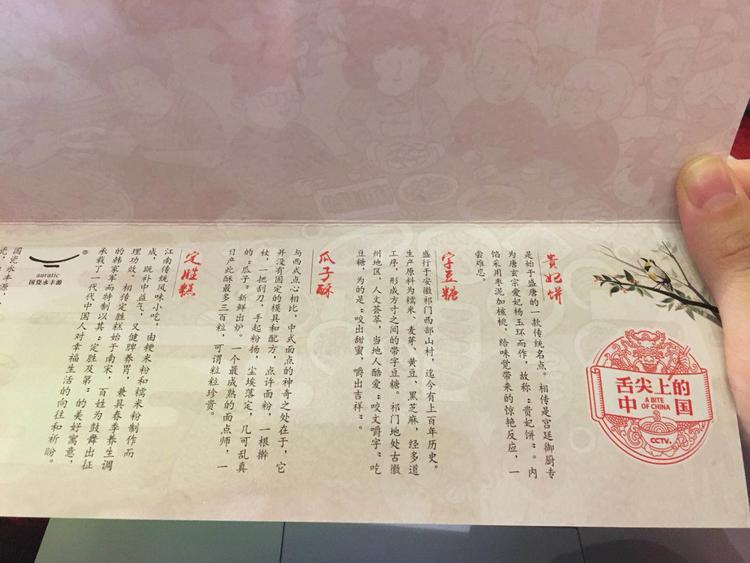 舌尖上的
中国
A BITE
OF CHINA
CCTV
贵妃饼
是始于盛唐的一款传统名点。相传是宫廷御厨专
为唐玄宗爱妃杨玉环而作，故称“贵妃饼”。内
馅采用枣泥加核桃，给味觉带来的惊艳反应，一
尝难忘。
字豆糖
盛行于安徽祁门西部山村，迄今有上百年历史。
生产原料为糯米、麦芽、黄豆、黑芝麻，经多道
工序，形成方寸之间的带字豆糖。祁门地处古徽
州地区，人文荟萃，当地人酷爱“咬文嚼字”吃
豆糖，为的是“咬出甜蜜，嚼出吉祥”。
瓜子酥
与西式点心相比，中式面点的神奇之处在于，它
并没有固定的模具和配方，点许面粉，一根擀
杖，一把刮刀，手起粉扬，尘埃落定，几可乱真
的“瓜子”新鲜出炉。一个最成熟的面点师，一
日产此酥最多三百粒，可谓粒粒珍贵。
定胜糕
江南传统风味小吃，由粳米粉和糯米粉制作而
成，既补中益气，又健脾养胃，兼具春季养生调
理功效。相传定胜糕始于南宋，百姓为鼓舞出征
的韩家军而特制以其“定胜及第”的美好寓意，
承载了一代代中国人对幸福生活的向往和祈盼。
auratic
国瓷永丰源
®
国瓷永丰源，